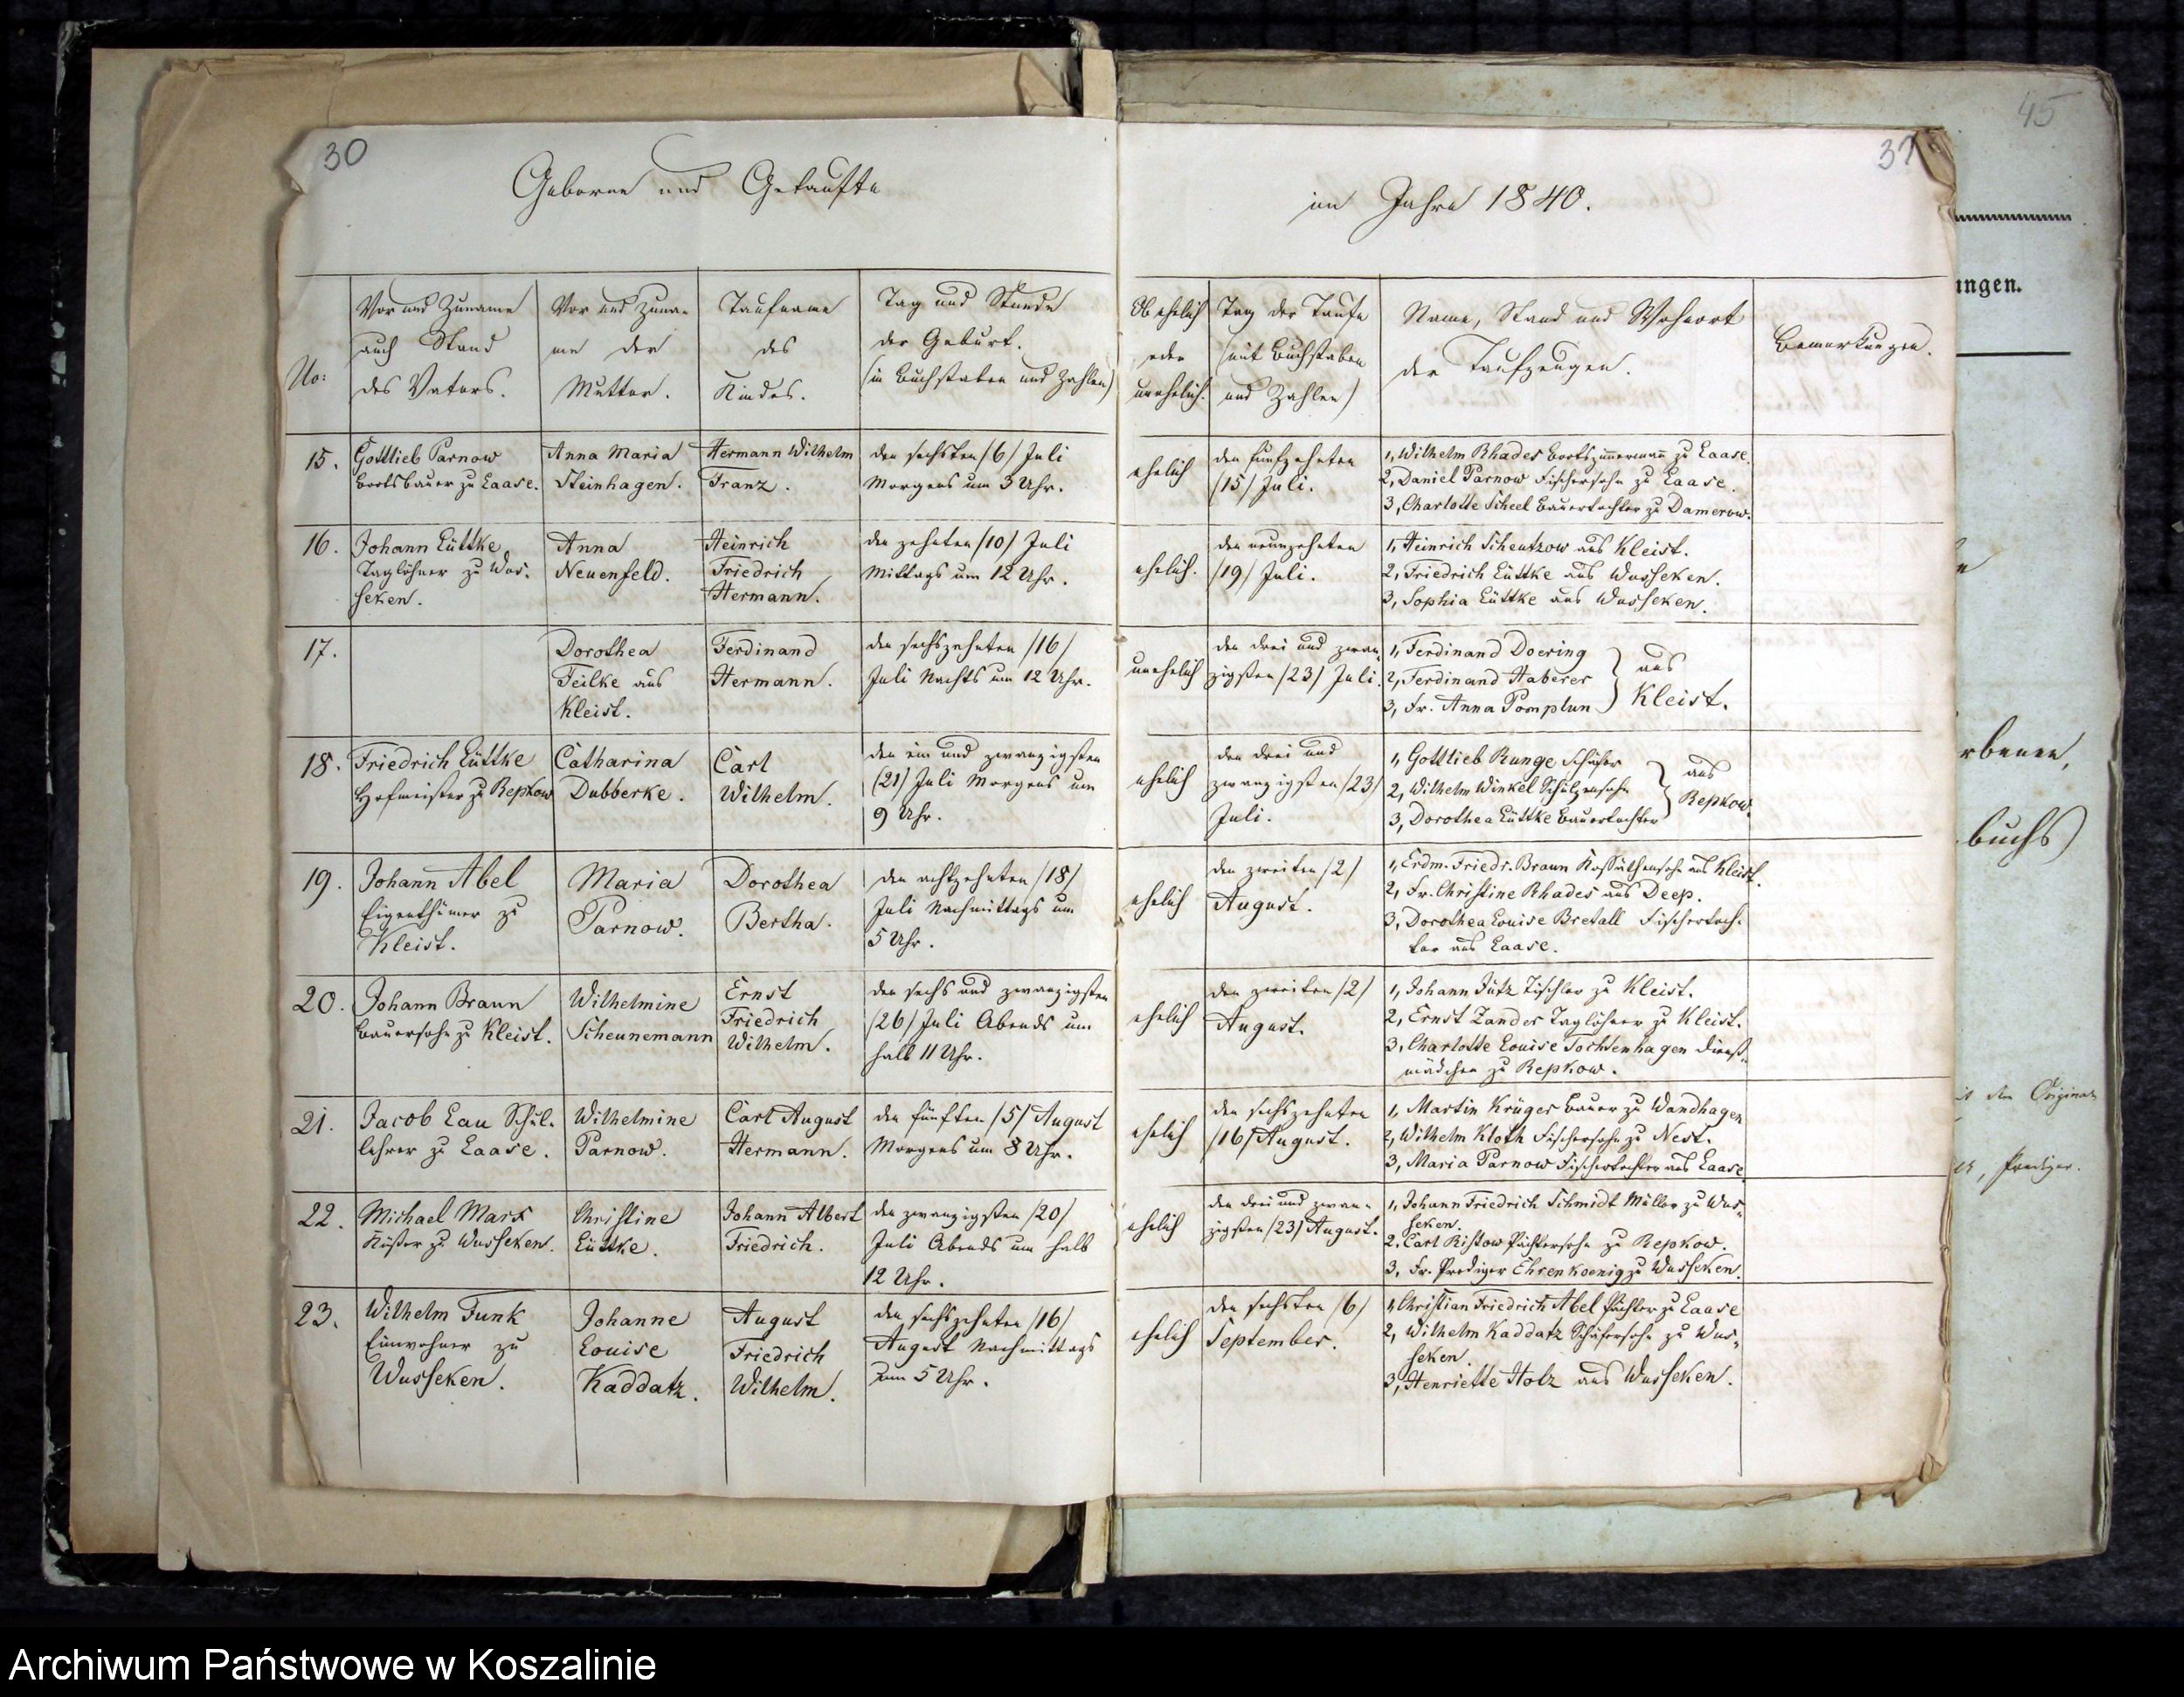 30
Geborne und Getaufte
No:
Vor und Zuname
auch Stand
des Vaters.
Vor und Zuna-
me der
Mutter.
Taufname
des
Kindes.
Tag und Stunde
der Geburt.
(in Buchstaben und Zahlen)
15.
Gottlieb Parnow
Bootsbauer zu Laase.
Anna Maria
Steinhagen.
Hermann Wilhelm
Franz.
den sechsten /6/ Juli
Morgens um 3 Uhr.
16.
Johann Lüttke
Taglöhner zu Wus-
seken.
Anna
Neuenfeld.
Heinrich
Friedrich
Hermann.
den zehnten /10/ Juli
Mittags um 12 Uhr.
17.
Dorothea
Teilke aus
Kleist.
Ferdinand
Hermann.
den sechszehnten /16/
Juli Nachts um 12 Uhr.
18.
Friedrich Lüttke
Hofmeister zu Repkow
Catharina
Dubberke.
Carl
Wilhelm.
den ein und zwanzigsten
(21) Juli Morgens um
9 Uhr.
19.
Johann Abel
Eigenthümer zu
Kleist.
Maria
Parnow.
Dorothea
Bertha.
den achtzehnten /18/
Juli Nachmittags um
5 Uhr.
20.
Johann Braun
Bauersohn zu Kleist.
Wilhelmine
Scheunemann
Ernst
Friedrich
Wilhelm.
den sechs und zwanzigsten
/26/ Juli Abends um
halb 11 Uhr.
21.
Jacob Lau Schul-
lehrer zu Laase.
Wilhelmine
Parnow.
Carl August
Hermann.
den fünften /5/ August
Morgens um 8 Uhr.
22.
Michael Marx
Küster zu Wusseken.
Christine
Lüttke.
Johann Albert
Friedrich.
den zwanzigsten /20/
Juli Abends um halb
12 Uhr.
23.
Wilhelm Funk
Einwohner zu
Wusseken.
Johanne
Louise
Kaddatz.
August
Friedrich
Wilhelm.
den sechszehnten /16/
August Nachmittags
um 5 Uhr.
31
im Jahre 1840.
Ob ehelich
oder
unehelich.
Tag der Taufe
(mit Buchstaben
und Zahlen)
Name, Stand und Wohnort
der Taufzeugen.
Bemerkungen.
ehelich
den funfzehnten
/15/ Juli.
1, Wilhelm Rhades Bootszimmermann zu Laase.
2, Daniel Parnow Fischersohn zu Laase.
3, Charlotte Scheel Bauertochter zu Damerow.
ehelich.
den neunzehnten
/19/ Juli.
1, Heinrich Scheutzow aus Kleist.
2, Friedrich Lüttke aus Wusseken.
3, Sophia Lüttke aus Wusseken.
unehelich
den drei und zwan-
zigsten /23/ Juli.
1, Ferdinand Doering
2, Ferdinand Haberer
3, Fr. Anna Pomplun
aus
Kleist.
ehelich
den drei und
zwanzigsten /23/
Juli.
1, Gottlieb Runge Schäfer
2, Wilhelm Winkel Schulzensohn
3, Dorothea Lüttke Bauertochter
aus
Repkow.
ehelich
den zweiten /2/
August.
1, Erdm. Friedr. Braun Kossäthensohn aus Kleist.
2, Fr. Christine Rhades aus Deep.
3, Dorothea Louise Bretall Fischertoch-
ter aus Laase.
ehelich
den zweiten /2/
August.
1, Johann Jütz Tischler zu Kleist.
2, Ernst Zander Taglöhner zu Kleist.
3, Charlotte Louise Tochtenhagen Dienst-
mädchen zu Repkow.
ehelich
den sechszehnten
/16/ August.
1, Martin Krüger Bauer zu Wandhagen
2, Wilhelm Kloth Fischersohn zu Nest.
3, Maria Parnow Fischertochter aus Laase
ehelich
den drei und zwan-
zigsten /23/ August.
1, Johann Friedrich Schmidt Müller zu Wus-
seken.
2, Carl Ristow Pächtersohn zu Repkow.
3, Fr. Prediger Ehrenkoenig zu Wusseken.
ehelich
den sechsten /6/
September.
1, Christian Friedrich Abel Pächter zu Laase
2, Wilhelm Kaddatz Schäfersohn zu Wus-
seken.
3, Henriette Holz aus Wusseken.
45
ungen.
rbenen,
buchs)
dem Original
Prediger.
Archiwum Państwowe w Koszalinie